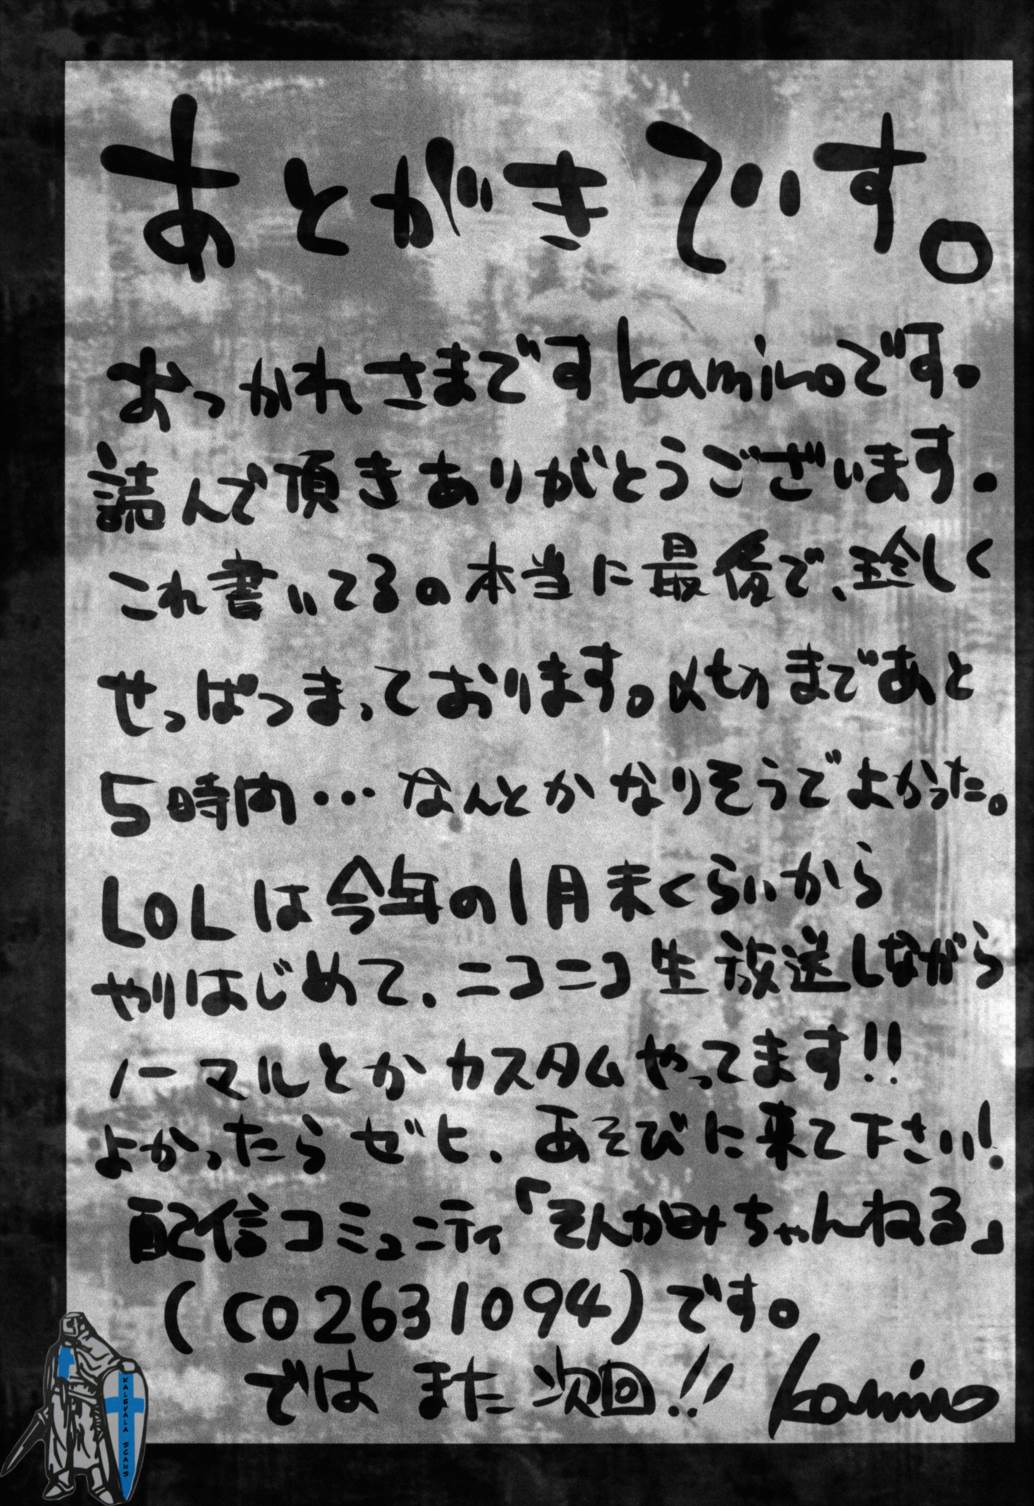 あとがきです。
おっかれさまですkaminoです。
読んで頂きありがとうございます。
これ書いてるの本当に最後で、珍しく
せっぱつまっております。〆切まであと
5時間…なんとかなりそうでよかった。
LOLは今年の1月末くらいから
やりはじめて、ニコニコ生放送しながら
ノーマルとかカスタムやってます!!
よかったらゼヒ、あそびに来て下さい!
配信コミュニティ「そんかみちゃんねる」
(co2631094)です。
ではまた次回!!
kamino
KALEVALA SCANS